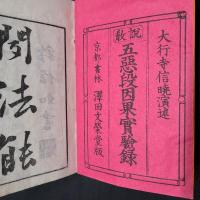 大行寺信曉演述
說教
五惡段因果實驗錄
京都書林 澤田文榮堂版
聞法能